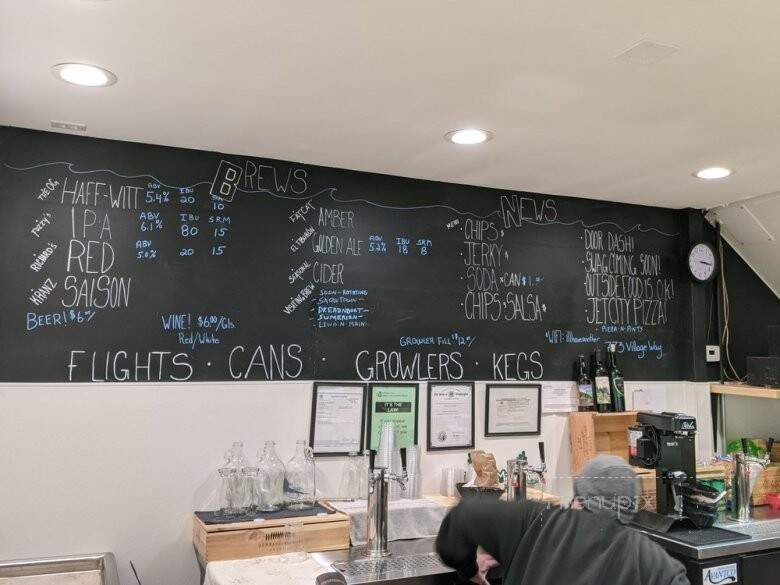 BREWS
THE OG HAFF-WITT ABV 5.4% IBU 20 SRM 10
IPA ABV 6.1% IBU 80 SRM 15
RICHARD'S RED ABV 5.0% 20 15
KRANZ SAISON
BEER! $6
WINE! $6.00/Gls.
Red/White
FATCAT AMBER
GOLDEN ALE ABV 5.2% IBU 18 SRM 8
CIDER
VISITING BREW
- SOON - ROTATING
- SNOWTOWN -
- DREADNOUGHT -
- SUMERIAN -
NEWS
MENU
CHIPS
JERKY
SODA *CAN $1.
CHIPS·SALSA
DOOR DASH!
SWAG COMING SOON!
OUTSIDE FOOD IS O.K!
JETCITY PIZZA!
PIZZA-N-PINTS
GROWLER FILL $12
*WIFI:
773 Village Way
FLIGHTS · CANS · GROWLERS · KEGS
IT'S THE LAW
menupix
AVANTCO